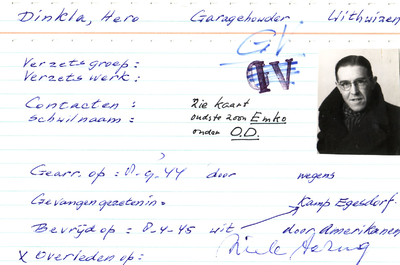 Dinkla, Hero Garagehouder Uithuizen
GV.
OV
Verzetsgroep :
Verzetswerk :
Contacten : zie kaart
Schuilnaam : oudste zoon Emko
onder O.D.
Gearr. op : 8-9-44 door wegens
Gevangengezeten in. Kamp Egesdorf.
Bevrijd op : 8-4-45 uit door Amerikanen
X Overleden op :